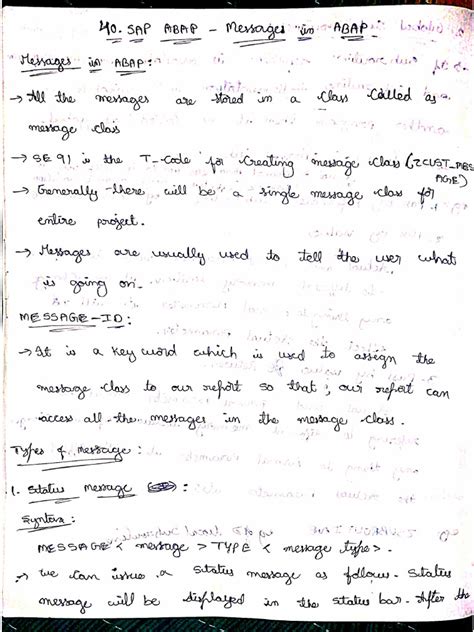 40. SAP ABAP - Messages in ABAP
Messages in ABAP:
→ All the messages are stored in a class called as
message class
→ SE91 is the T-code for creating message class (ZCUST_MES
SAGE)
→ Generally there will be a single message class for
entire project.
→ Messages are usually used to tell the user what
is going on.
MESSAGE-ID:
→ It is a keyword which is used to assign the
message class to our report so that, our report can
access all the messages in the message class.
Types of message:
1. Status message :
Syntax:
MESSAGE < message > TYPE < message type>.
→ We can issue a status message as follows. Status
message will be displayed in the status bar. After the